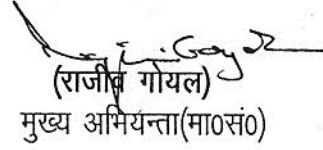 (राजीव गोयल)
मुख्य अभियन्ता(मा0सं0)